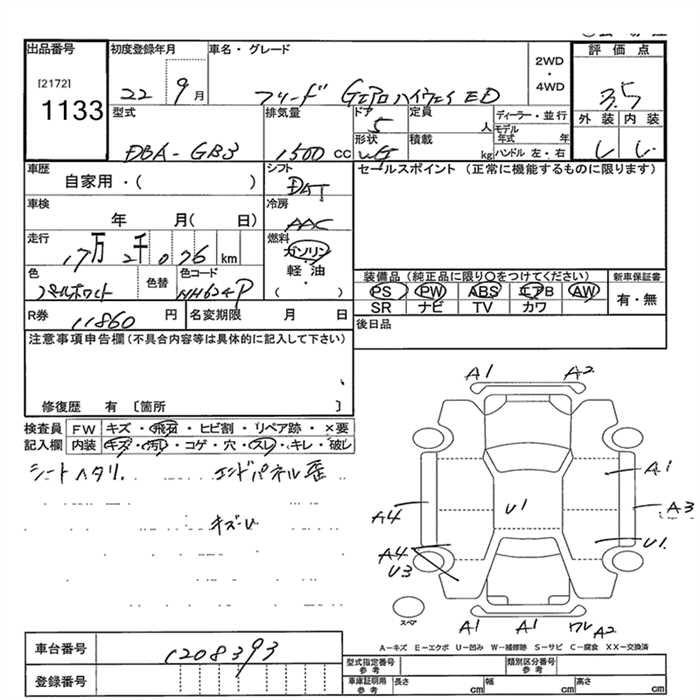 出品番号
[2172]
1133
初度登録年月
22 9月
車名・グレード
フリード Gエアロ ハイウェイ ED
2WD
・
4WD
評価点
3.5
外装 内装
型式
DBA-GB3
排気量
1500 cc
ドア
5
形状
WG
定員
人
積載
kg
ディーラー・並行
モデル年式 年
ハンドル 左・右
車歴
自家用・( )
シフト
DAT
セールスポイント (正常に機能するものに限ります)
車検
年 月( 日)
冷房
AAC
走行
17万2千076km
燃料
ガソリン
軽・油
( )
色
パールホワイト
色替
色コード
NH624P
装備品 (純正品に限り○をつけてください)
PS PW ABS エアB AW
SR ナビ TV カワ
新車保証書
有・無
R券
11860 円
名変期限 月 日
後日品
注意事項申告欄 (不具合内容等は具体的に記入して下さい)
修復歴 有 [箇所 ]
検査員
記入欄
FW キズ・飛石・ヒビ割・リペア跡・×要
内装 キズ・汚レ・コゲ・穴・スレ・キレ・破レ
シートヘタリ エンドパネル歪
キズU
A1 A2
A1
U1
A4 A3
A4
U3
U1
スペア
A1 A1 ワレ A2
A-キズ E-エクボ U-凹み W-補修跡 S-サビ C-腐食 XX-交換済
車台番号
1208393
登録番号
型式指定番号
参考
類別区分番号
参考
車庫証明用
参考
長さ cm 幅 cm 高さ cm